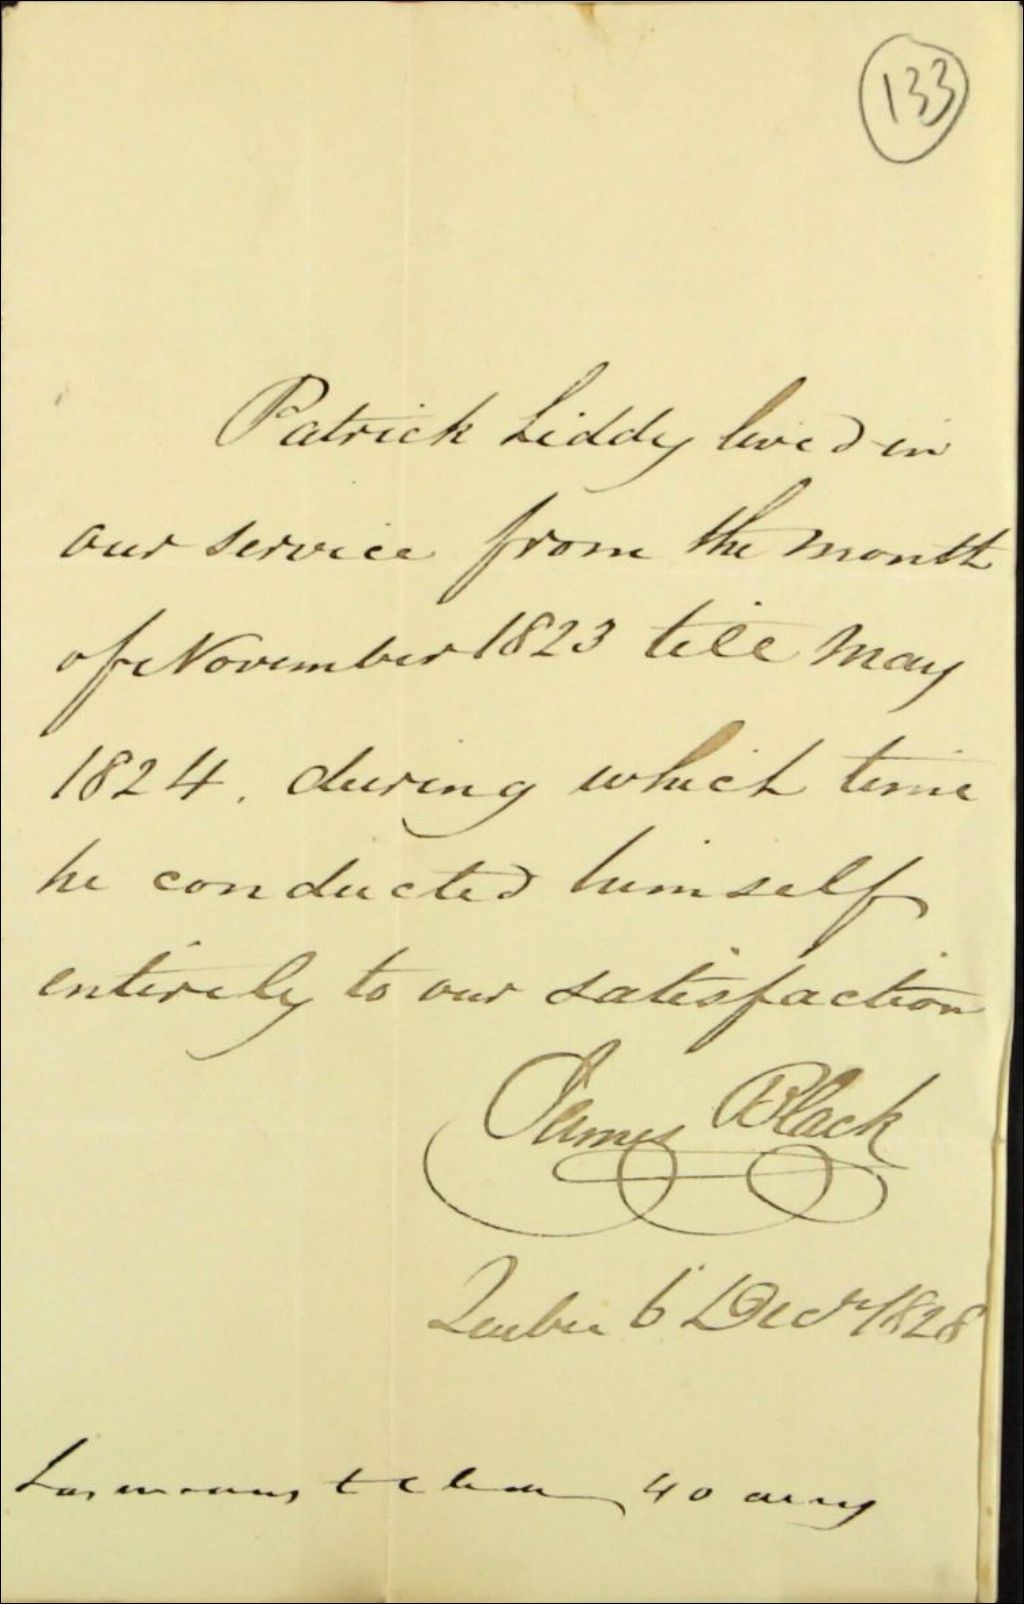 133
Patrick Liddy lived in
our service from the month
of November 1823 till May
1824. during which time
he conducted himself
entirely to our satisfaction
James Black
Quebec 6 Decr 1828
has means to clear 40 acres